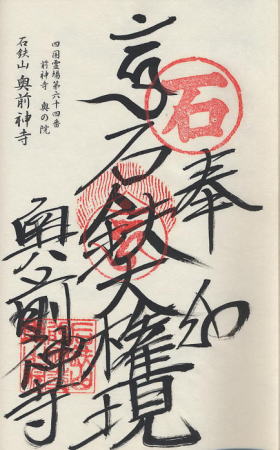 奉納
石
石鉄大権現
奥前神寺
四国霊場第六十四番
前神寺 奥の院
石鉄山 奥前神寺